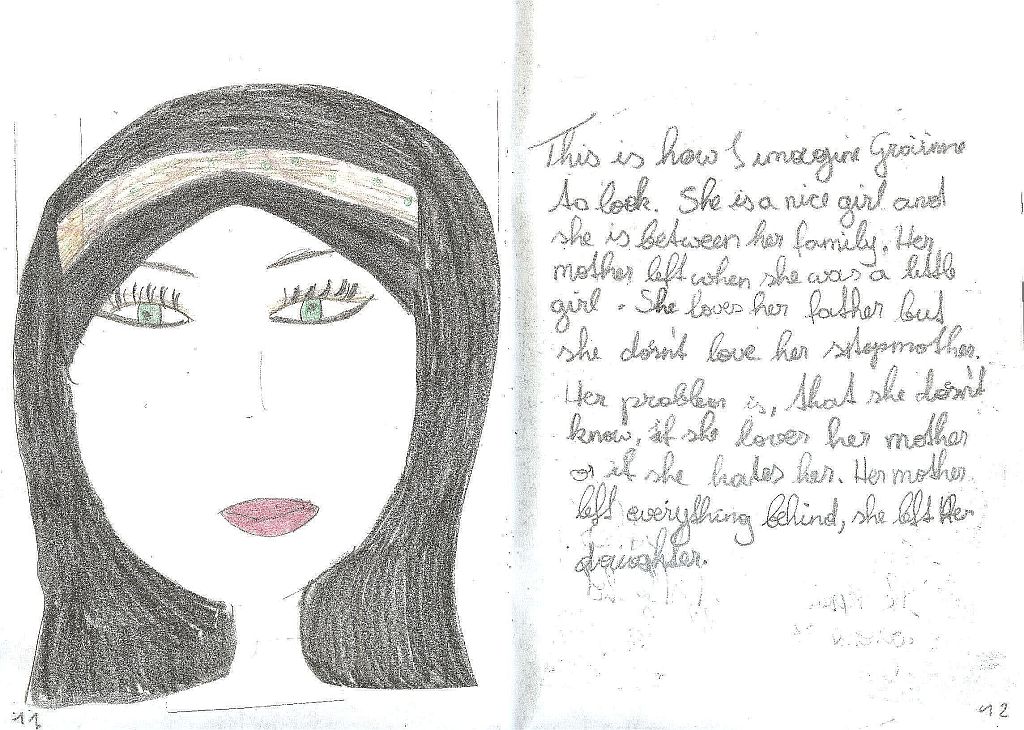 This is how I imagine Gráinne
to look. She is a nice girl and
she is between her family. Her
mother left when she was a little
girl. She loves her father but
she dosn't love her sitepmother.
Her problem is, that she dosn't
know, if she loves her mother
or if she hates her. Her mother
left everything behind, she left Her
daughter.
11
12